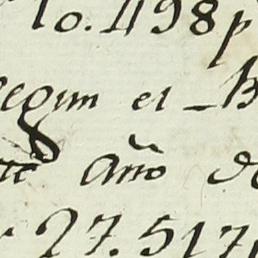 lo. 498p
segun el B
te año de
27.517